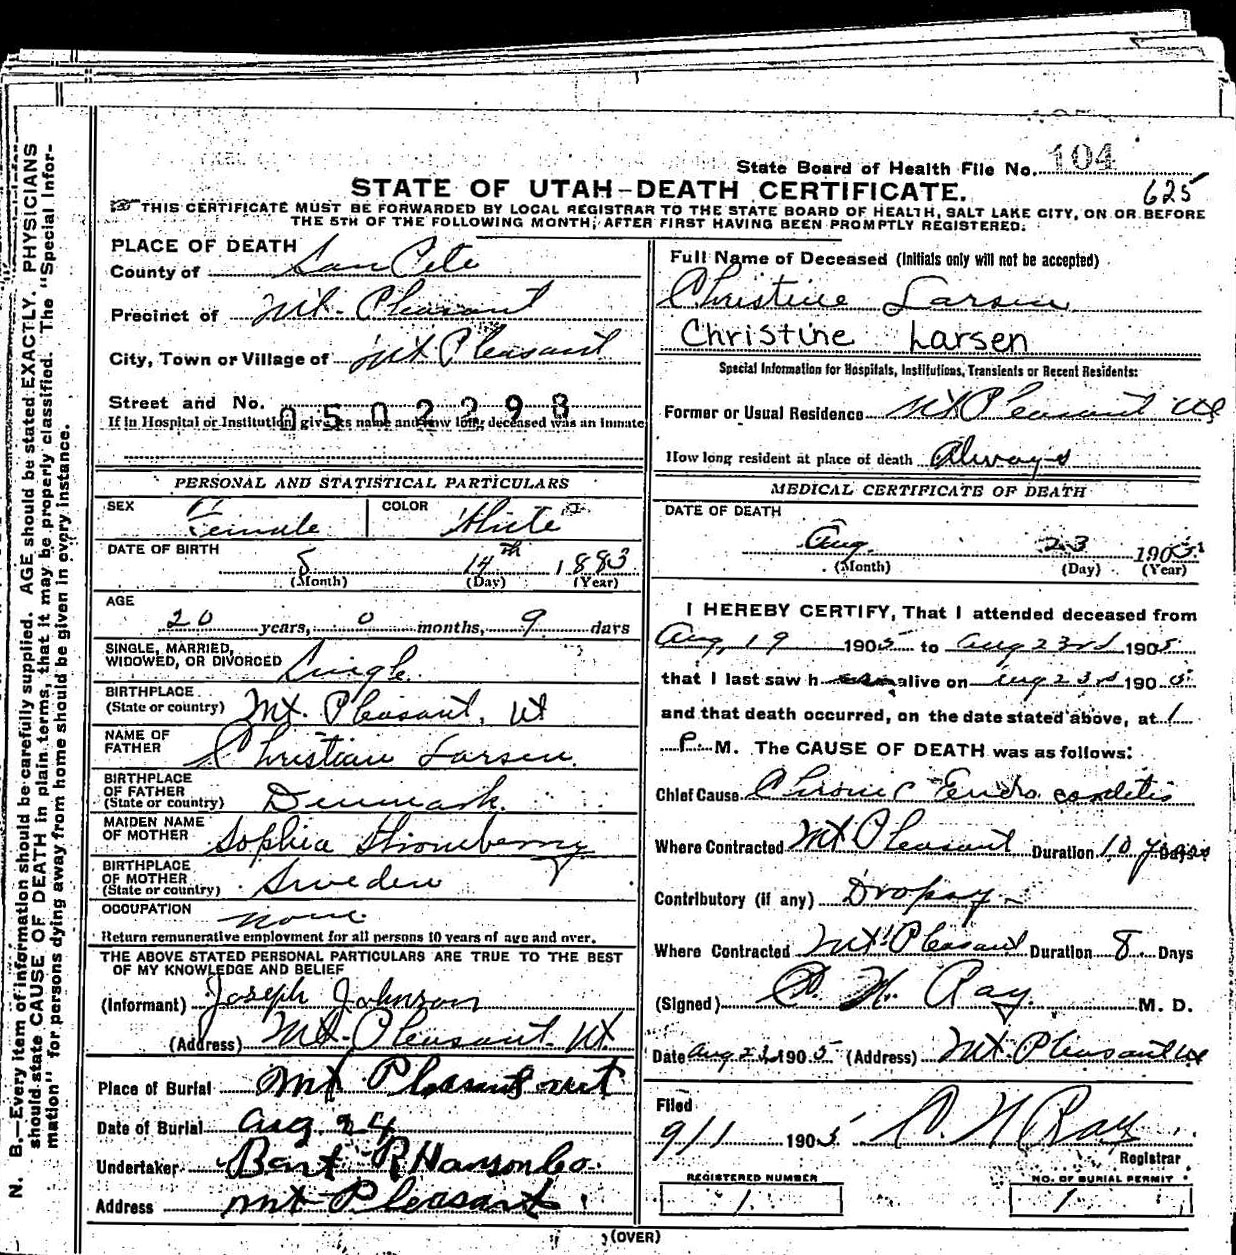 State Board of Health File No. 104
625
STATE OF UTAH-DEATH CERTIFICATE.
THIS CERTIFICATE MUST BE FORWARDED BY LOCAL REGISTRAR TO THE STATE BOARD OF HEALTH, SALT LAKE CITY, ON OR BEFORE
THE 5TH OF THE FOLLOWING MONTH, AFTER FIRST HAVING BEEN PROMPTLY REGISTERED.
PLACE OF DEATH
County of San Pete
Precinct of Mt. Pleasant
City, Town or Village of Mt Pleasant
Street and No. 0502298
If in Hospital or Institution, give its name and how long deceased was an inmate
PERSONAL AND STATISTICAL PARTICULARS
SEX Female COLOR White
DATE OF BIRTH
8 14th 1883
(Month) (Day) (Year)
AGE
20 years, 0 months, 9 days
SINGLE, MARRIED,
WIDOWED, OR DIVORCED Single
BIRTHPLACE
(State or country) Mt. Pleasant, Ut
NAME OF
FATHER Christian Larsen
BIRTHPLACE
OF FATHER
(State or country) Denmark
MAIDEN NAME
OF MOTHER Sophia
BIRTHPLACE
OF MOTHER
(State or country) Sweden
OCCUPATION none
Return remunerative employment for all persons 10 years of age and over.
THE ABOVE STATED PERSONAL PARTICULARS ARE TRUE TO THE BEST
OF MY KNOWLEDGE AND BELIEF
(Informant) Joseph Johnson
(Address) Mt. Pleasant. Ut
Place of Burial Mt Pleasant ut
Date of Burial aug 24
Undertaker Bent R Hanson Co.
Address Mt Pleasant
Full Name of Deceased (Initials only will not be accepted)
Christine Larsen
Christine Larsen
Special Information for Hospitals, Institutions, Transients or Recent Residents:
Former or Usual Residence Mt Pleasant Ut
How long resident at place of death Always
MEDICAL CERTIFICATE OF DEATH
DATE OF DEATH
Aug. 23 1905
(Month) (Day) (Year)
I HEREBY CERTIFY, That I attended deceased from
Aug, 19 1905 to Aug 23rd 1905
that I last saw h alive on Aug 23rd 1905
and that death occurred, on the date stated above, at 1
P. M. The CAUSE OF DEATH was as follows:
Chief Cause Chronic Endocarditis
Where Contracted Mt Pleasant Duration 10 years Days
Contributory (if any) Dropsy
Where Contracted Mt Pleasant Duration 8 Days
(Signed) P. H. Ray M. D.
Date Aug 23, 1905 (Address) Mt Pleasant Ut
Filed
9/1 1905 Ray
Registrar
REGISTERED NUMBER
1
NO. OF BURIAL PERMIT
1
(OVER)
N. B.—Every item of information should be carefully supplied. AGE should be stated EXACTLY. PHYSICIANS
should state CAUSE OF DEATH in plain terms, that it may be properly classified. The "Special Infor-
mation" for persons dying away from home should be given in every instance.